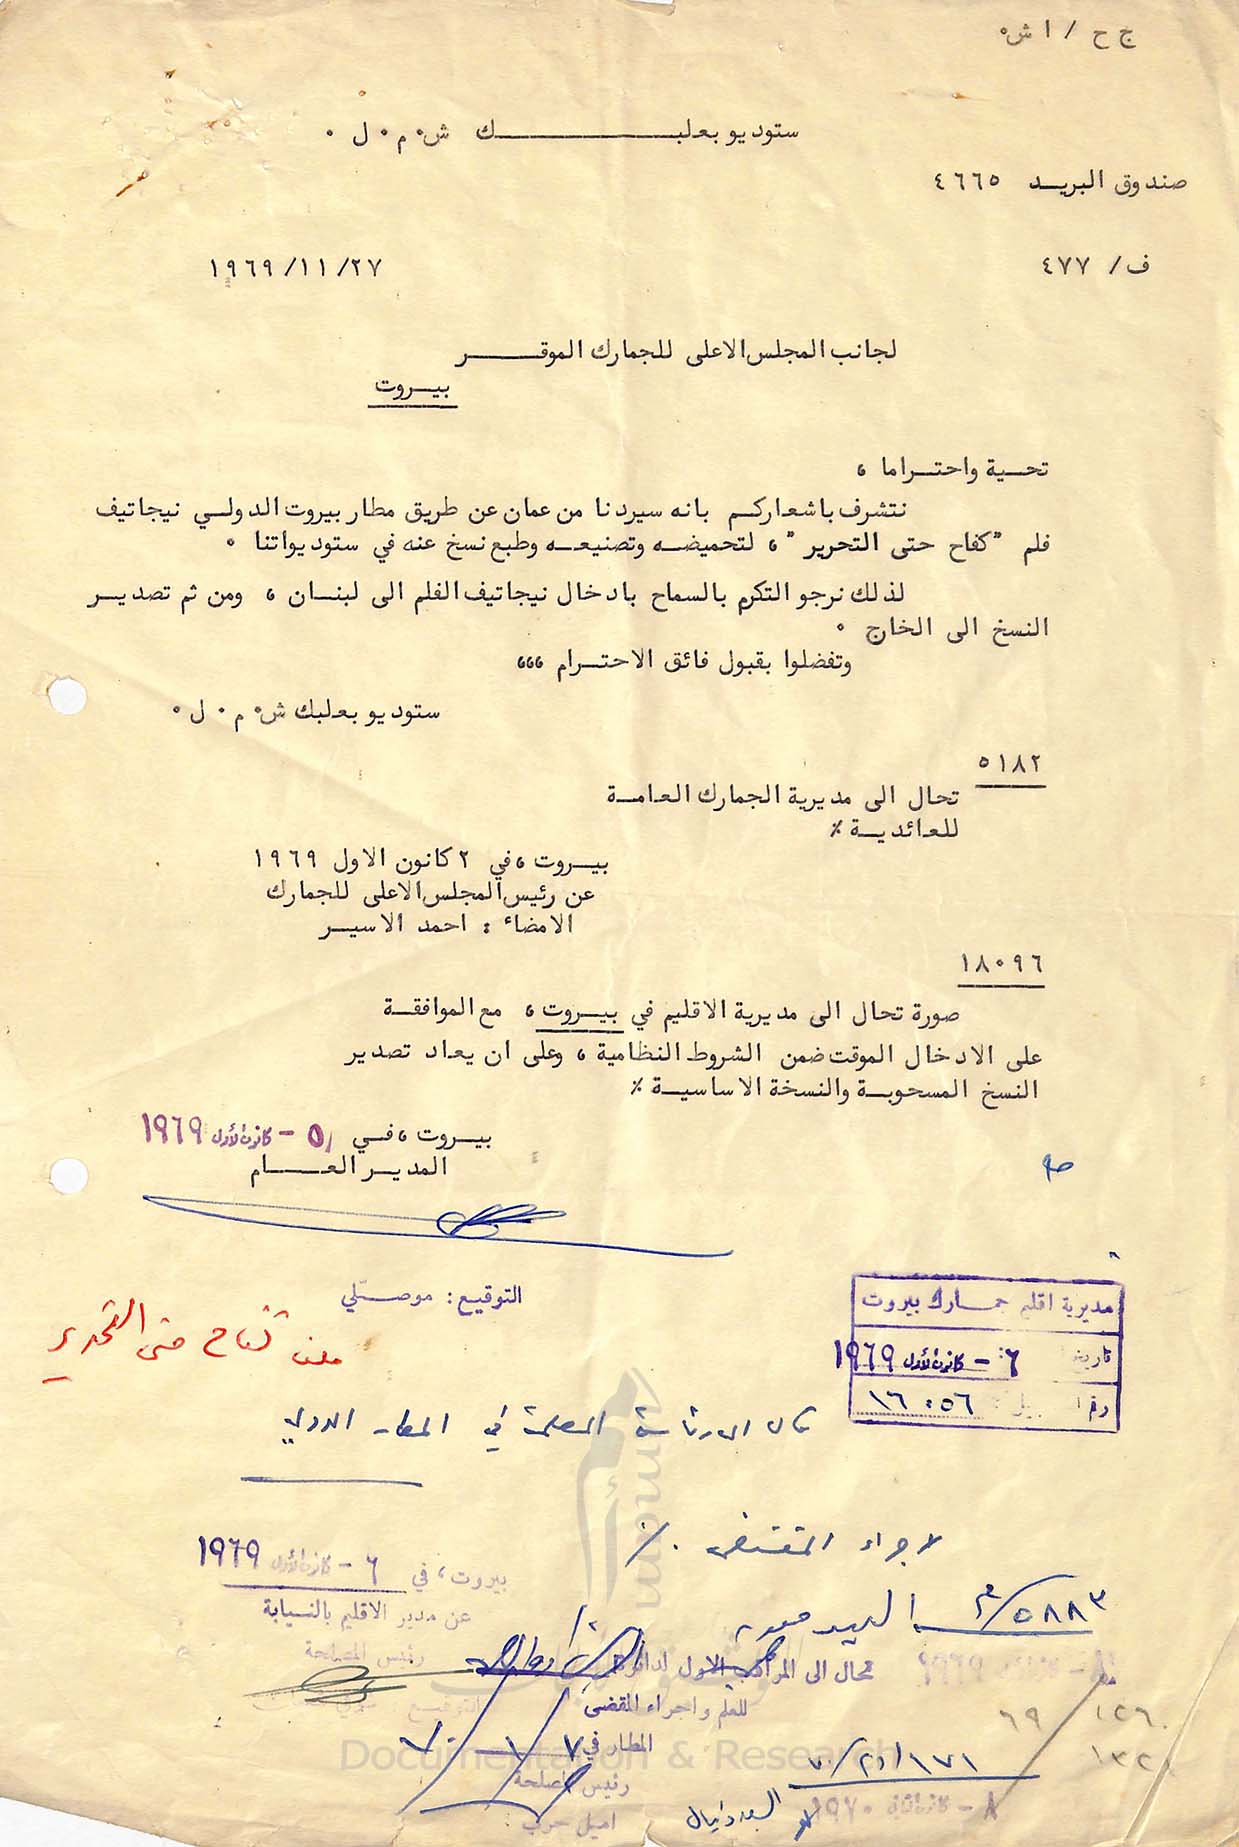 ج ح / ١ ش٠
ستوديو بعلبـــــــــــــــــــك ش٠ م٠ ل ٠
صندوق البريـــد ٤٦٦٥
ف/ ٤٧٧
١٩٦٩/١١/٢٧
لجانب المجلس الاعلى للجمارك الموقـــــر
بيـــروت
تحـــية واحتـــراما ،
نتشرف باشعاركـــم بانه سيردنا من عمان عن طريق مطار بيروت الدولـــي نيجاتيف
فلم "كفاح حتى التحرير" ، لتحميضـــه وتصنيعـــه وطبع نسخ عنه في ستوديواتنا ٠
لذلك نرجو التكرم بالسماح بادخال نيجاتيف الفلم الى لبنـــان ، ومن ثم تصديـــر
النسخ الى الخاج ٠
وتفضلوا بقبول فائق الاحتـــرام ،،،
ستوديو بعلبك ش٠ م٠ ل٠
٥١٨٢
تحال الى مديرية الجمارك العامـــة
للعائديـــة ٪
بيـــروت ، في ٢ كانون الاول ١٩٦٩
عن رئيس المجلس الاعلى للجمارك
الامضاء : احمد الاسيـــر
١٨٠٩٦
صورة تحال الى مديرية الاقليم في بيـــروت ، مع الموافقـــة
على الادخال الموقت ضمن الشروط النظامية ، وعلى ان يعاد تصدير
النسخ المسحوبـــة والنسخة الاساسيـــة ٪
بيـــروت ، فـــي ٥ - كانون الأول ١٩٦٩
المديـــر العـــــام
التوقيع: موصـّلي
ملف كفاح حتى التحرير
مديرية اقليم جمـــارك بيروت
تاريخ ٦ - كانون الأول ١٩٦٩
رقم ١٦٠٥٦
تحال الى رئاسة المصلحة في المطار الدولي
لاجراء المقتضى ٪
بيروت، في ٦ - كانون الأول ١٩٦٩
عن مدير الاقليم بالنـــيابة
رئيس المصلحة
٥٨٨٣/م
السيد
محال الى المراقب الاول لدائرة
للعلم واجراء المقتضى
المطار في ٧/١/٧٠
رئيس المصلحة
اميل حرب
١٢٦٠
٦٩
٨ - كانون الثاني ١٩٧٠
السيد دانيال
Documentation & Research